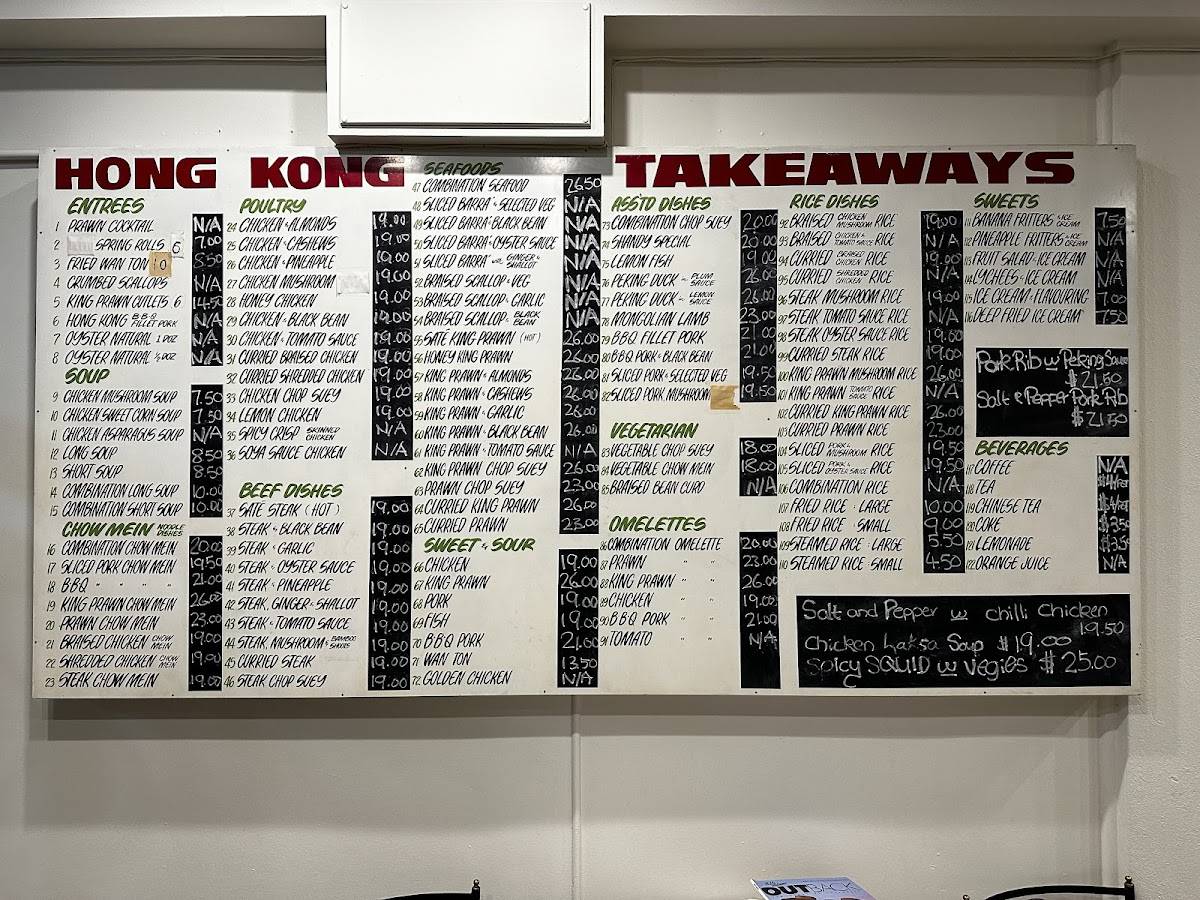 HONG KONG TAKEAWAYS
ENTREES
1 PRAWN COCKTAIL N/A
2 SPRING ROLLS 6 7.00
3 FRIED WAN TON 10 8.50
4 CRUMBED SCALLOPS N/A
5 KING PRAWN CUTLETS 6 14.50
6 HONG KONG B.B.Q FILLET PORK N/A
7 OYSTER NATURAL 1 DOZ N/A
8 OYSTER NATURAL ½ DOZ N/A
SOUP
9 CHICKEN MUSHROOM SOUP 7.50
10 CHICKEN SWEET CORN SOUP 7.50
11 CHICKEN ASPARAGUS SOUP N/A
12 LONG SOUP 8.50
13 SHORT SOUP 8.50
14 COMBINATION LONG SOUP 10.00
15 COMBINATION SHORT SOUP 10.00
CHOW MEIN NOODLE DISHES
16 COMBINATION CHOW MEIN 20.00
17 SLICED PORK CHOW MEIN 19.50
18 B.B.Q " " " 21.00
19 KING PRAWN CHOW MEIN 26.00
20 PRAWN CHOW MEIN 23.00
21 BRAISED CHICKEN CHOW MEIN 19.00
22 SHREDDED CHICKEN CHOW MEIN 19.00
23 STEAK CHOW MEIN 19.00
POULTRY
24 CHICKEN & ALMONDS 19.00
25 CHICKEN & CASHEWS 19.00
26 CHICKEN & PINEAPPLE 19.00
27 CHICKEN MUSHROOM 19.00
28 HONEY CHICKEN 19.00
29 CHICKEN & BLACK BEAN 19.00
30 CHICKEN & TOMATO SAUCE 19.00
31 CURRIED BRAISED CHICKEN 19.00
32 CURRIED SHREDDED CHICKEN 19.00
33 CHICKEN CHOP SUEY 19.00
34 LEMON CHICKEN 19.00
35 SPICY CRISP SKINNED CHICKEN N/A
36 SOYA SAUCE CHICKEN N/A
BEEF DISHES
37 SATE STEAK (HOT) 19.00
38 STEAK & BLACK BEAN 19.00
39 STEAK & GARLIC 19.00
40 STEAK & OYSTER SAUCE 19.00
41 STEAK & PINEAPPLE 19.00
42 STEAK, GINGER & SHALLOT 19.00
43 STEAK & TOMATO SAUCE 19.00
44 STEAK, MUSHROOM & BAMBOO SHOOTS 19.00
45 CURRIED STEAK 19.00
46 STEAK CHOP SUEY 19.00
SEAFOODS
47 COMBINATION SEAFOOD 26.50
48 SLICED BARRA & SELECTED VEG N/A
49 SLICED BARRA & BLACK BEAN N/A
50 SLICED BARRA & OYSTER SAUCE N/A
51 SLICED BARRA WITH GINGER & SHALLOT N/A
52 BRAISED SCALLOP & VEG N/A
53 BRAISED SCALLOP & GARLIC N/A
54 BRAISED SCALLOP & BLACK BEAN N/A
55 SATÉ KING PRAWN (HOT) 26.00
56 HONEY KING PRAWN 26.00
57 KING PRAWN & ALMONDS 26.00
58 KING PRAWN & CASHEWS 26.00
59 KING PRAWN & GARLIC 26.00
60 KING PRAWN & BLACK BEAN 26.00
61 KING PRAWN & TOMATO SAUCE N/A
62 KING PRAWN CHOP SUEY 26.00
63 PRAWN CHOP SUEY 23.00
64 CURRIED KING PRAWN 26.00
65 CURRIED PRAWN 23.00
SWEET & SOUR
66 CHICKEN 19.00
67 KING PRAWN 26.00
68 PORK 19.00
69 FISH 19.00
70 B.B.Q PORK 21.00
71 WAN TON 13.50
72 GOLDEN CHICKEN N/A
ASSTD DISHES
73 COMBINATION CHOP SUEY 20.00
74 SHANDY SPECIAL 20.00
75 LEMON FISH 19.00
76 PEKING DUCK - PLUM SAUCE 26.00
77 PEKING DUCK - LEMON SAUCE 26.00
78 MONGOLIAN LAMB 23.00
79 B.B.Q FILLET PORK 21.00
80 B.B.Q PORK & BLACK BEAN 21.00
81 SLICED PORK & SELECTED VEG 19.50
82 SLICED PORK MUSHROOM 19.50
VEGETARIAN
83 VEGETABLE CHOP SUEY 18.00
84 VEGETABLE CHOW MEIN 18.00
85 BRAISED BEAN CURD N/A
OMELETTES
86 COMBINATION OMELETTE 20.00
87 PRAWN " " 23.00
88 KING PRAWN " " 26.00
89 CHICKEN " " 19.00
90 B.B.Q PORK " " 21.00
91 TOMATO " " N/A
RICE DISHES
92 BRAISED CHICKEN MUSHROOM RICE 19.00
93 BRAISED CHICKEN & TOMATO SAUCE RICE N/A
94 CURRIED BRAISED CHICKEN RICE 19.00
95 CURRIED SHREDDED CHICKEN RICE N/A
96 STEAK MUSHROOM RICE 19.00
97 STEAK TOMATO SAUCE RICE N/A
98 STEAK OYSTER SAUCE RICE 19.50
99 CURRIED STEAK RICE 19.00
100 KING PRAWN MUSHROOM RICE 26.00
101 KING PRAWN TOMATO SAUCE RICE N/A
102 CURRIED KING PRAWN RICE 26.00
103 CURRIED PRAWN RICE 23.00
104 SLICED PORK & MUSHROOM RICE 19.50
105 SLICED PORK & OYSTER SAUCE RICE 19.50
106 COMBINATION RICE N/A
107 FRIED RICE - LARGE 10.00
108 FRIED RICE - SMALL 9.00
109 STEAMED RICE - LARGE 5.50
110 STEAMED RICE - SMALL 4.50
SWEETS
111 BANANA FRITTERS & ICE CREAM 7.50
112 PINEAPPLE FRITTERS & ICE CREAM N/A
113 FRUIT SALAD & ICE CREAM N/A
114 LYCHEES & ICE CREAM N/A
115 ICE CREAM & FLAVOURING 7.00
116 DEEP FRIED ICE CREAM 7.50
Pork Rib w Peking Sauce
$21.50
Salt & Pepper Pork Rib
$21.50
BEVERAGES
117 COFFEE N/A
118 TEA
119 CHINESE TEA
120 COKE $3.50
121 LEMONADE $3.50
122 ORANGE JUICE N/A
Salt and Pepper w chilli Chicken
19.50
Chicken Laksa Soup $19.00
Spicy SQUID w Vegies $25.00
OUTBACK